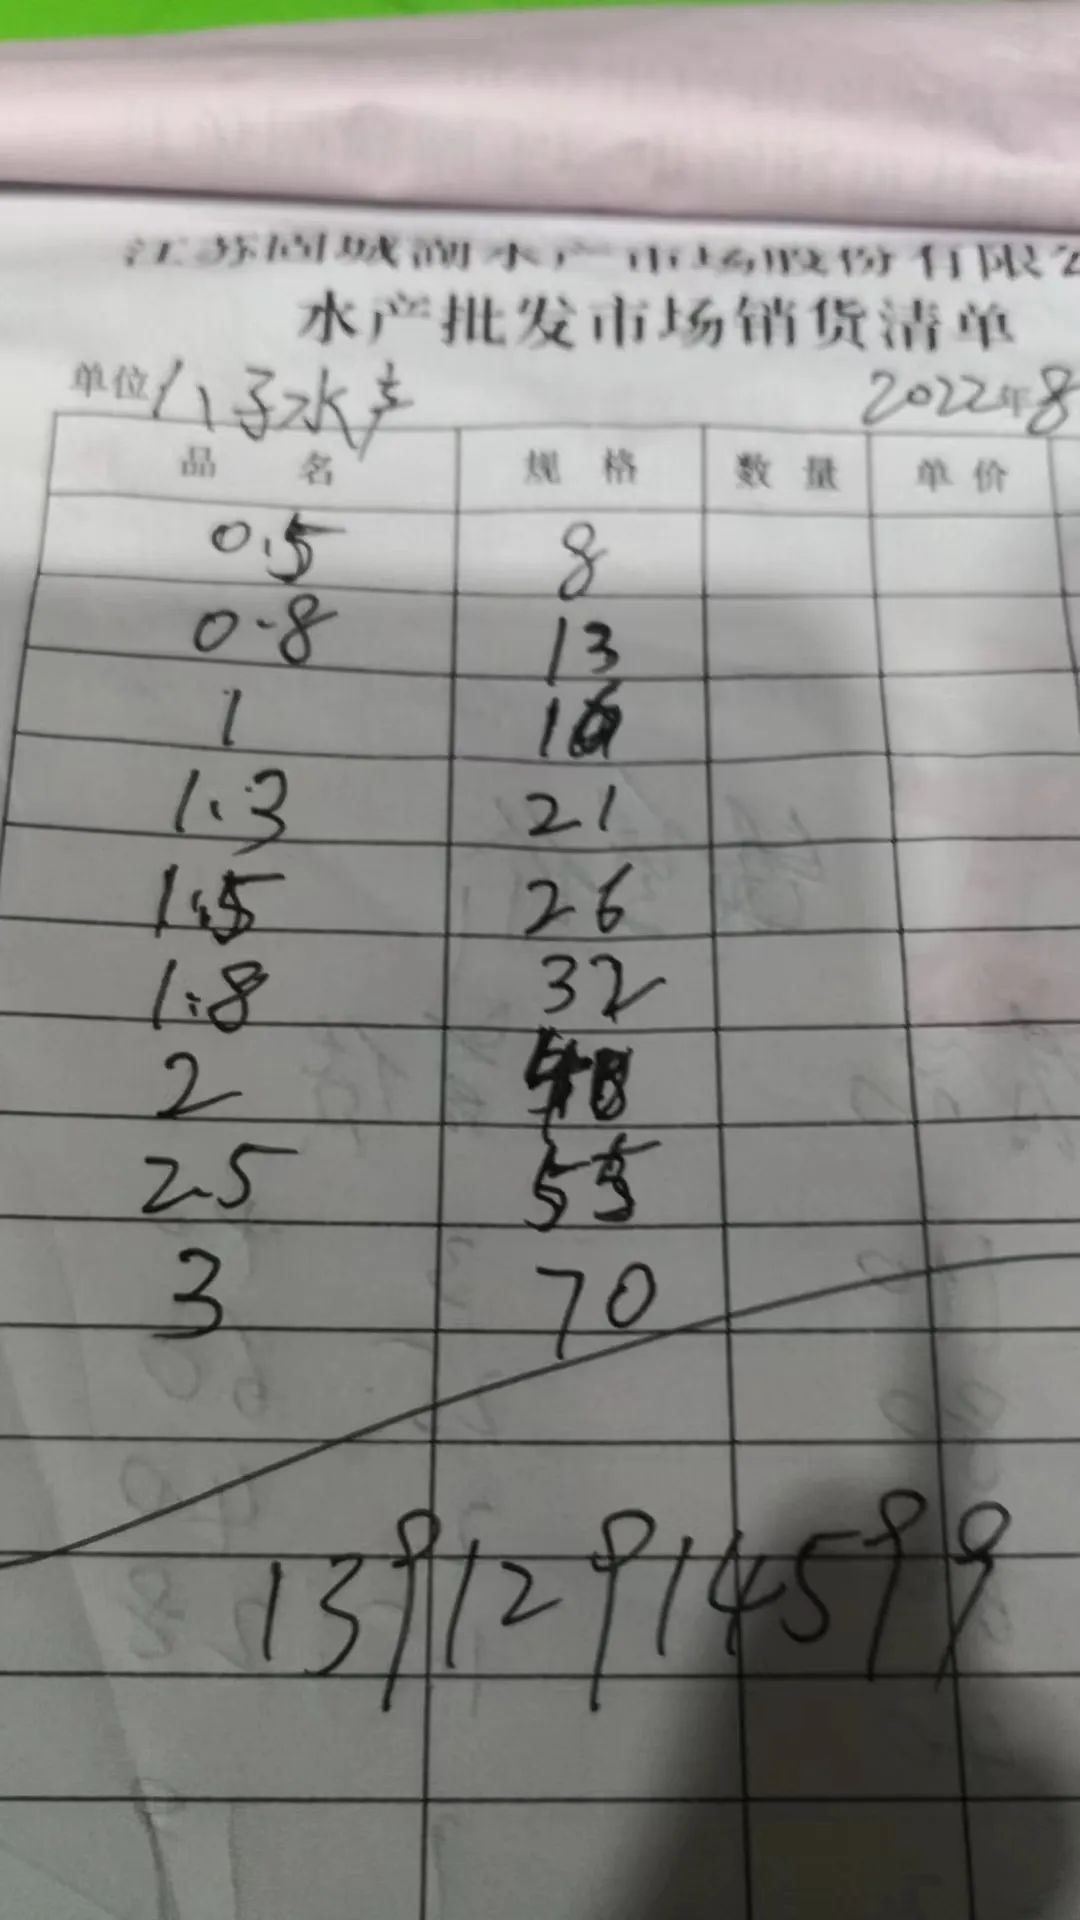 水产批发市场销货清单
单位 八子水产 2022年8
品 名 规 格 数 量 单 价
0.5 8
0.8 13
1 16
1.3 21
1.5 26
1.8 32
2
2.5 55
3 70
13912914599